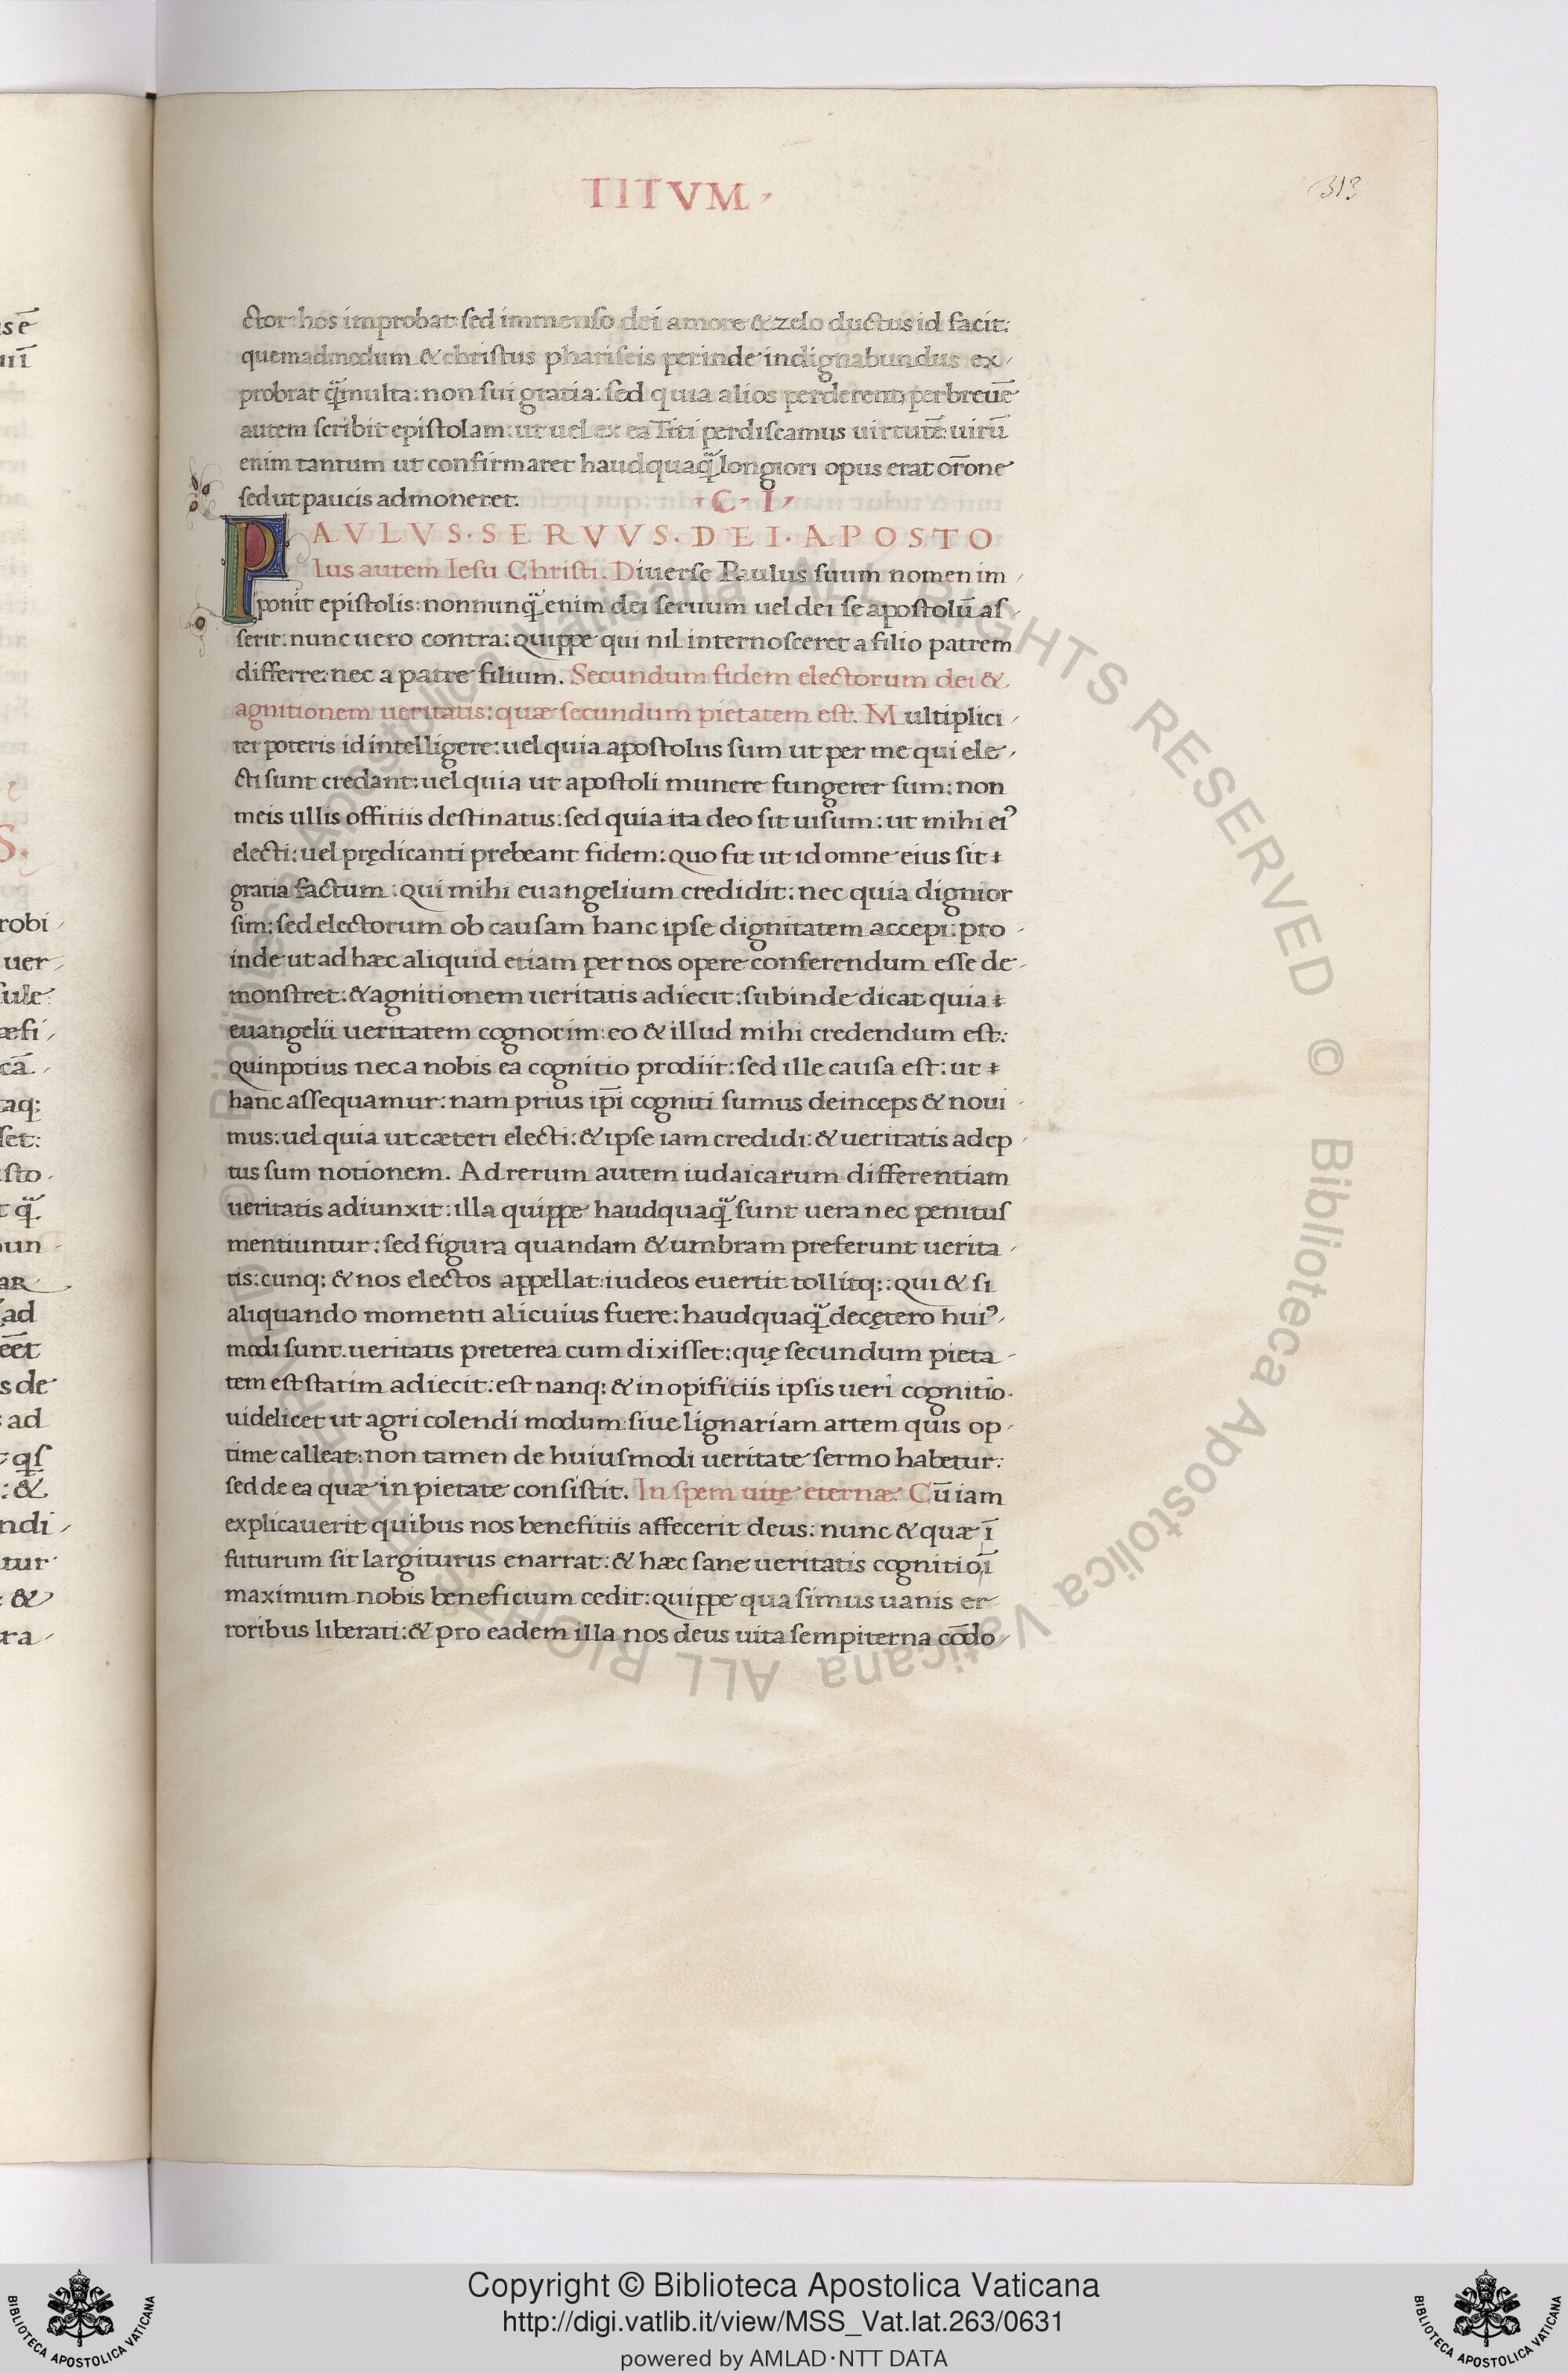 TITVM
313
ctor: hos improbat: sed immenso dei amore & zelo ductus id facit:
quemadmodum & christus phariseis perinde indignabundus ex
probrat q̃multa: non sui gratia: sed quia alios perderent: perbreuē
autem scribit epistolam: ut uel ex ea Titi perdiscamus uirtutē: uirū
enim tantum ut confirmaret haudquaq̃ longiori opus erat or̄one
sed ut paucis admoneret. C. I
PAVLVS. SERVVS. DEI. APOSTO
lus autem Iesu Christi. Diuerse Paulus suum nomen im
ponit epistolis: nonnunq̃ enim dei seruum uel dei se apostolū as
serit: nunc uero contra: quippe qui nil internosceret a filio patrem
differre: nec a patre filium. Secundum fidem electorum dei &
agnitionem ueritatis: quæ secundum pietatem est. Multiplici
ter poteris id intelligere: uel quia apostolus sum ut per me qui ele
cti sunt credant: uel quia ut apostoli munere fungerer sum: non
meis ullis offitiis destinatus: sed quia ita deo sit uisum: ut mihi ei⁹
electi: uel prędicanti prebeant fidem: quo fit ut id omne eius sit
gratia factum: qui mihi euangelium credidit: nec quia dignior
sim: sed electorum ob causam hanc ipse dignitatem accepi: pro
inde ut ad hæc aliquid etiam per nos opere conferendum esse de
monstret: & agnitionem ueritatis adiecit: subinde dicat quia
euangelii ueritatem cognorim: eo & illud mihi credendum est:
quinpotius nec a nobis ea cognitio prodiit: sed ille causa est: ut
hanc assequamur: nam prius ip̄i cogniti sumus deinceps & noui
mus: uel quia ut cæteri electi: & ipse iam credidi: & ueritatis adep
tus sum notionem. Ad rerum autem iudaicarum differentiam
ueritatis adiunxit: illa quippe haudquaq̃ sunt uera nec penitus
mentiuntur: sed figura quandam & umbram preferunt uerita
tis: cunq; & nos electos appellat: iudeos euertit tollitq;: qui & si
aliquando momenti alicuius fuere: haudquaq̃ decętero hui⁹
modi sunt. ueritatis preterea cum dixisset: quę secundum pieta
tem est statim adiecit: est nanq; & in opifitiis ipsis ueri cognitio.
uidelicet ut agri colendi modum: siue lignariam artem quis op
time calleat: non tamen de huiusmodi ueritate sermo habetur:
sed de ea quæ in pietate consistit. In spem uitę eternæ. Cū iam
explicauerit quibus nos benefitiis affecerit deus: nunc & quæ ī
futurum sit largiturus enarrat: & hæc sane ueritatis cognitio ī
maximum nobis beneficium cedit: quippe qua simus uanis er
roribus liberati: & pro eadem illa nos deus uita sempiterna cōdo
Copyright © Biblioteca Apostolica Vaticana
http://digi.vatlib.it/view/MSS_Vat.lat.263/0631
powered by AMLAD·NTT DATA